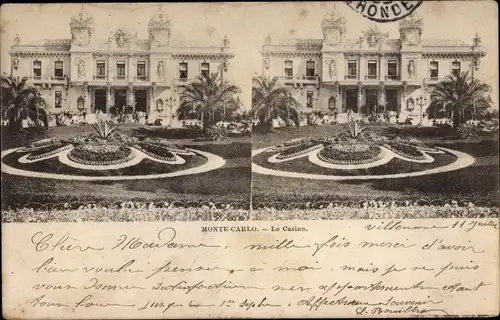 RHONE
MONTE-CARLO. - Le Casino.
Villeneuve 11 juillet
Chère Madame mille fois merci d'avoir
bien voulu penser a moi, mais je ne puis
vous donner satisfaction nos appartements etant
tous loué jusque 1er Septbre. Affectueux Souvenir